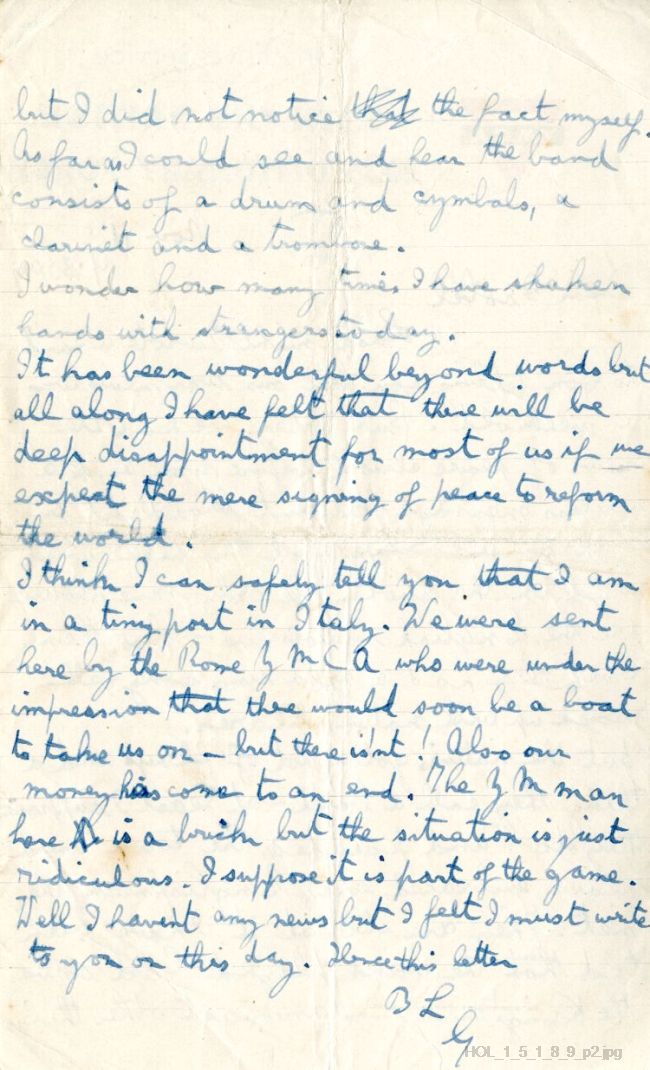 but I did not notice that the fact myself.
As far as I could see and hear the band
consists of a drum and cymbals, a
clarinet and a trombone.
I wonder how many times I have shaken
hands with strangers today.
It has been wonderful beyond words but
all along I have felt that there will be
deep disappointment for most of us if we
expect the mere signing of peace to reform
the world.
I think I can safely tell you that I am
in a tiny port in Italy. We were sent
here by the Rome Y M C A who were under the
impression that there would soon be a boat
to take us on – but there is'nt! Also our
money has come to an end. The Y M man
here is a brick but the situation is just
ridiculous. I suppose it is part of the game.
Well I haven't any news but I felt I must write
to you on this day. Hence this letter
B L
G
HOL_1_5_1_8_9_p2.jpg